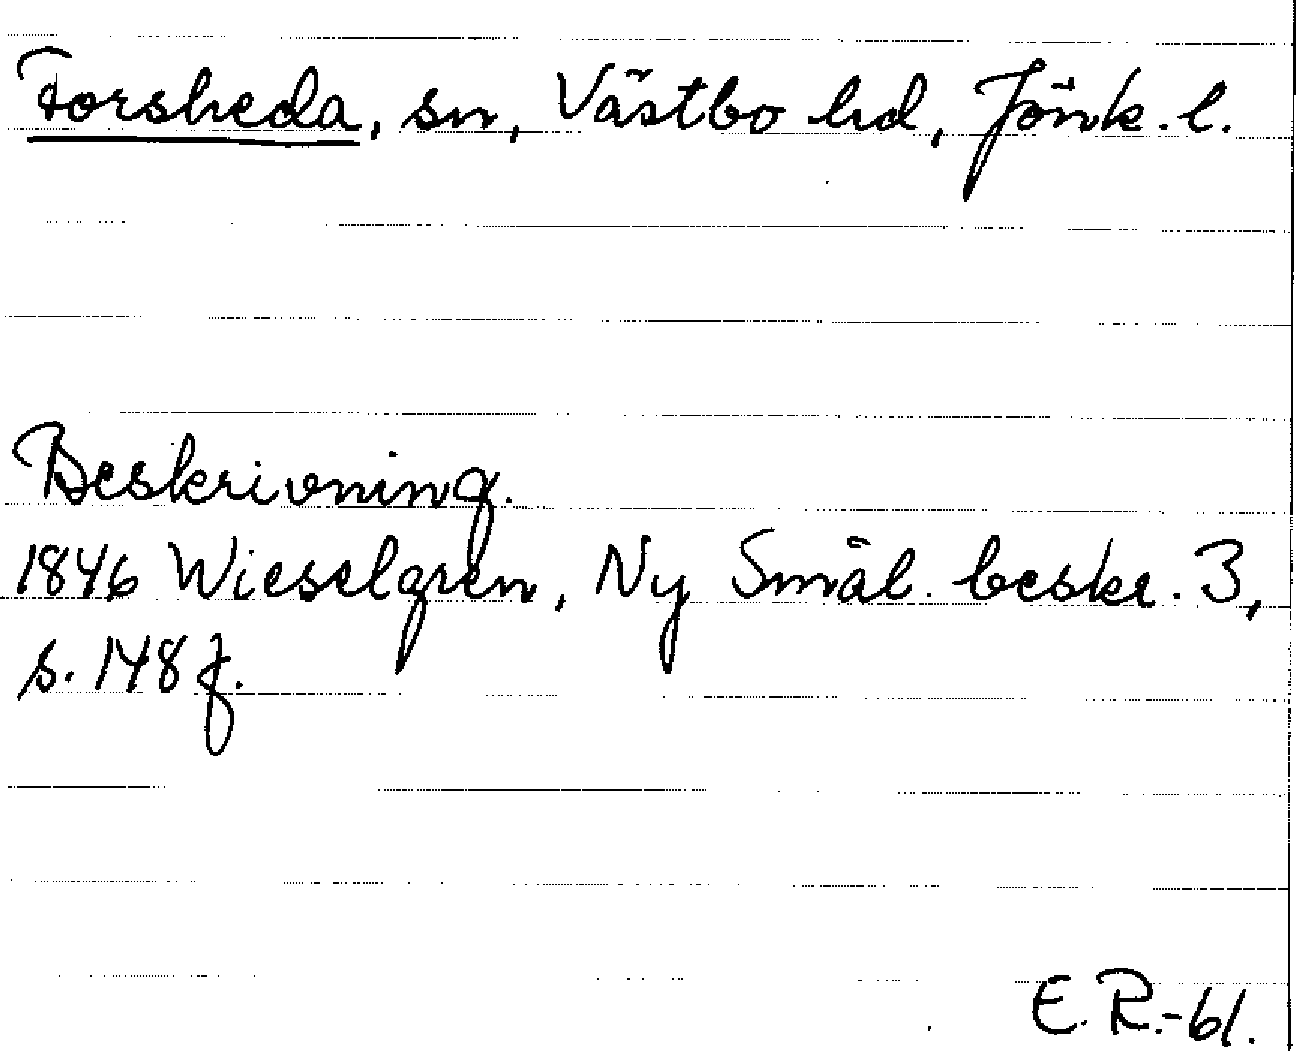 Forsheda, sn, Västbo hd, Jönk. l.
Beskrivning.
1846 Wieselgren, Ny Smål. beskr. 3,
s. 148 f.
E. R.-61.